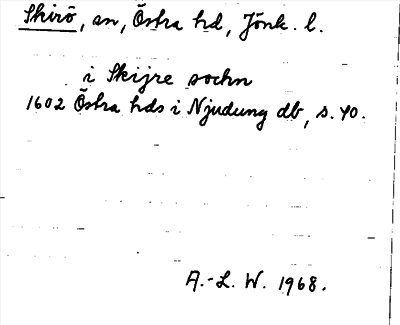 Skirö, sn, Östra hd, Jönk. l.
i Skijre sochn
1602 Östra hds i Njudung db, s. 40.
A.-L. W. 1968.